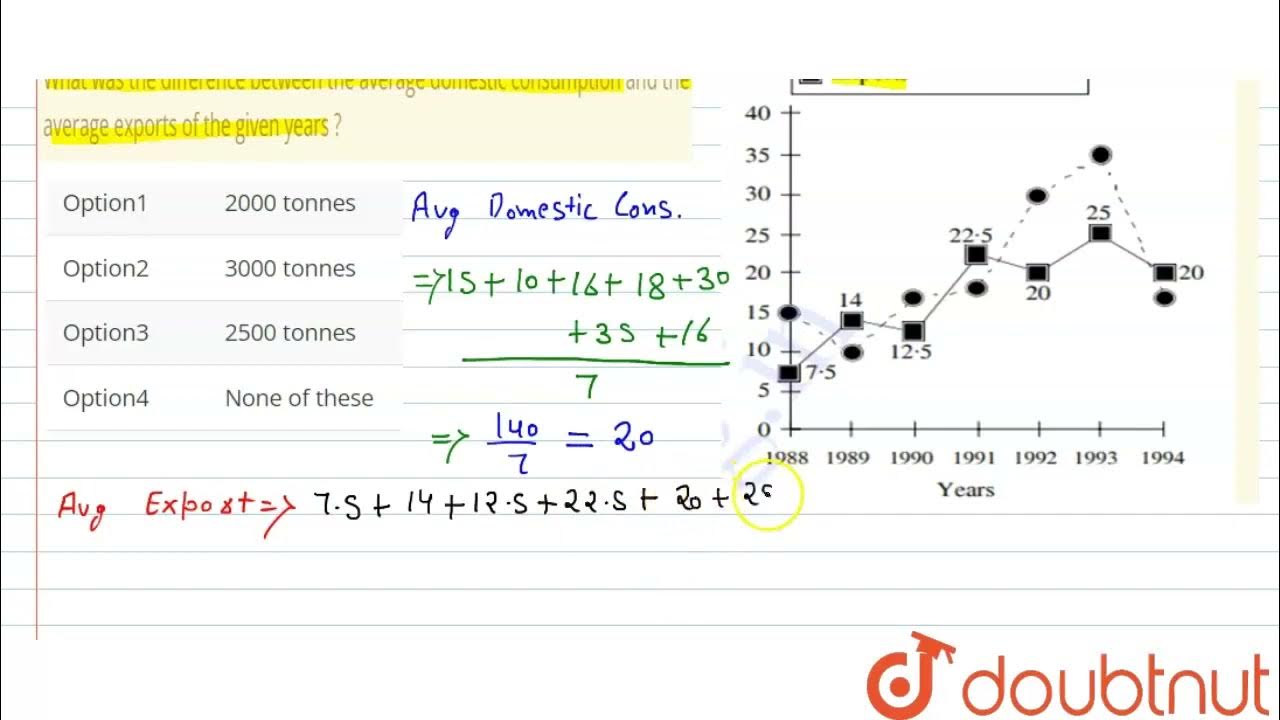 What was the difference between the average domestic consumption and the
average exports of the given years ?
Option1 2000 tonnes
Option2 3000 tonnes
Option3 2500 tonnes
Option4 None of these
Avg Domestic Cons.
=> 15 + 10 + 16 + 18 + 30
+ 35 + 16
7
=> 140/7 = 20
Avg Export => 7.5 + 14 + 12.5 + 22.5 + 20 + 25
40
35
30
25
20
15
10
5
0
7·5
14
12·5
22·5
20
25
20
1988 1989 1990 1991 1992 1993 1994
Years
doubtnut